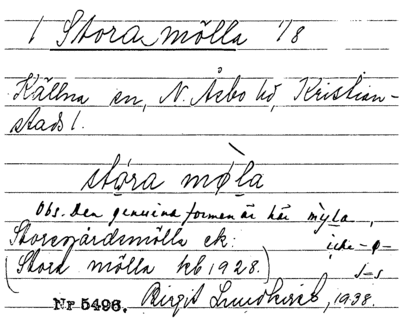 1 Stora mölla 1/8
Källna sn, N. Åsbo hd, Kristian-
stads l.
stǫra mø̀la
Obs. Den genuina formen är här my̆la,
Storegårdsmölla ek. icke -ø-
(Stora mölla kb 1928.) s-s
Nr 5496. Birgit Lundkvist, 1938.